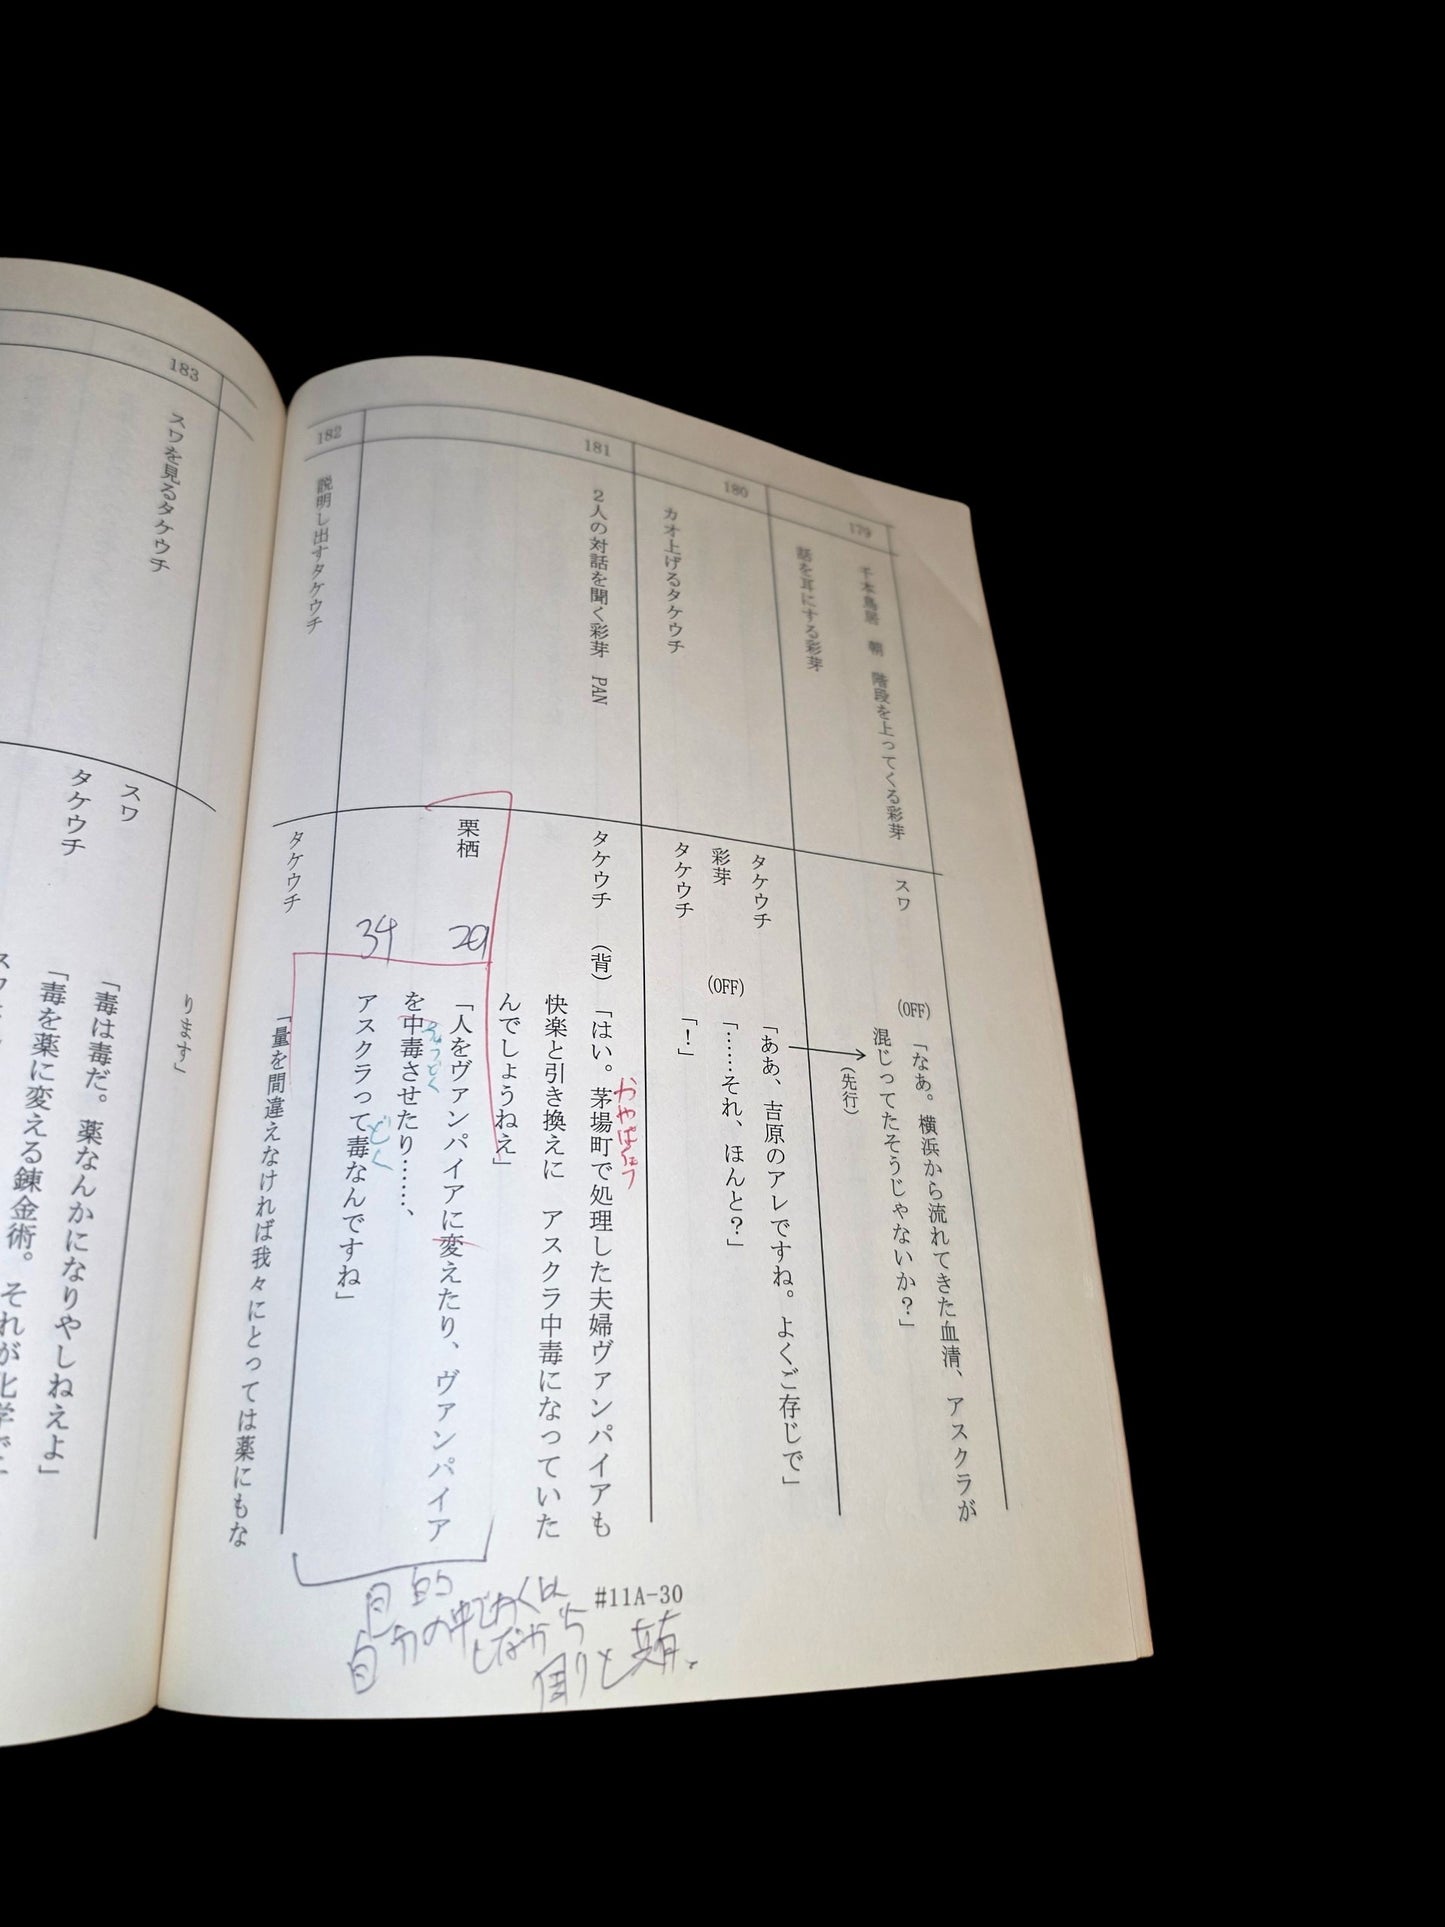 179
千本鳥居　朝　階段を上ってくる彩芽
話を耳にする彩芽
スワ
(OFF)
「なあ。横浜から流れてきた血清、アスクラが
混じってたそうじゃないか？」
(先行)
180
カオ上げるタケウチ
タケウチ
「ああ、吉原のアレですね。よくご存じで」
彩芽
(OFF)
「……それ、ほんと？」
タケウチ
「！」
181
2人の対話を聞く彩芽　PAN
タケウチ
(背)
「はい。茅場町で処理した夫婦ヴァンパイアも
快楽と引き換えに　アスクラ中毒になっていた
んでしょうねえ」
栗栖
29
「人をヴァンパイアに変えたり、ヴァンパイア
を中毒させたり……、
34
アスクラって毒なんですね」
どく
182
説明し出すタケウチ
タケウチ
「量を間違えなければ我々にとっては薬にもな
#11A-30
目的
自分の中で
しながら
ります」
183
スワを見るタケウチ
スワ
「毒は毒だ。薬なんかになりやしねえよ」
タケウチ
「毒を薬に変える錬金術。それが化学で